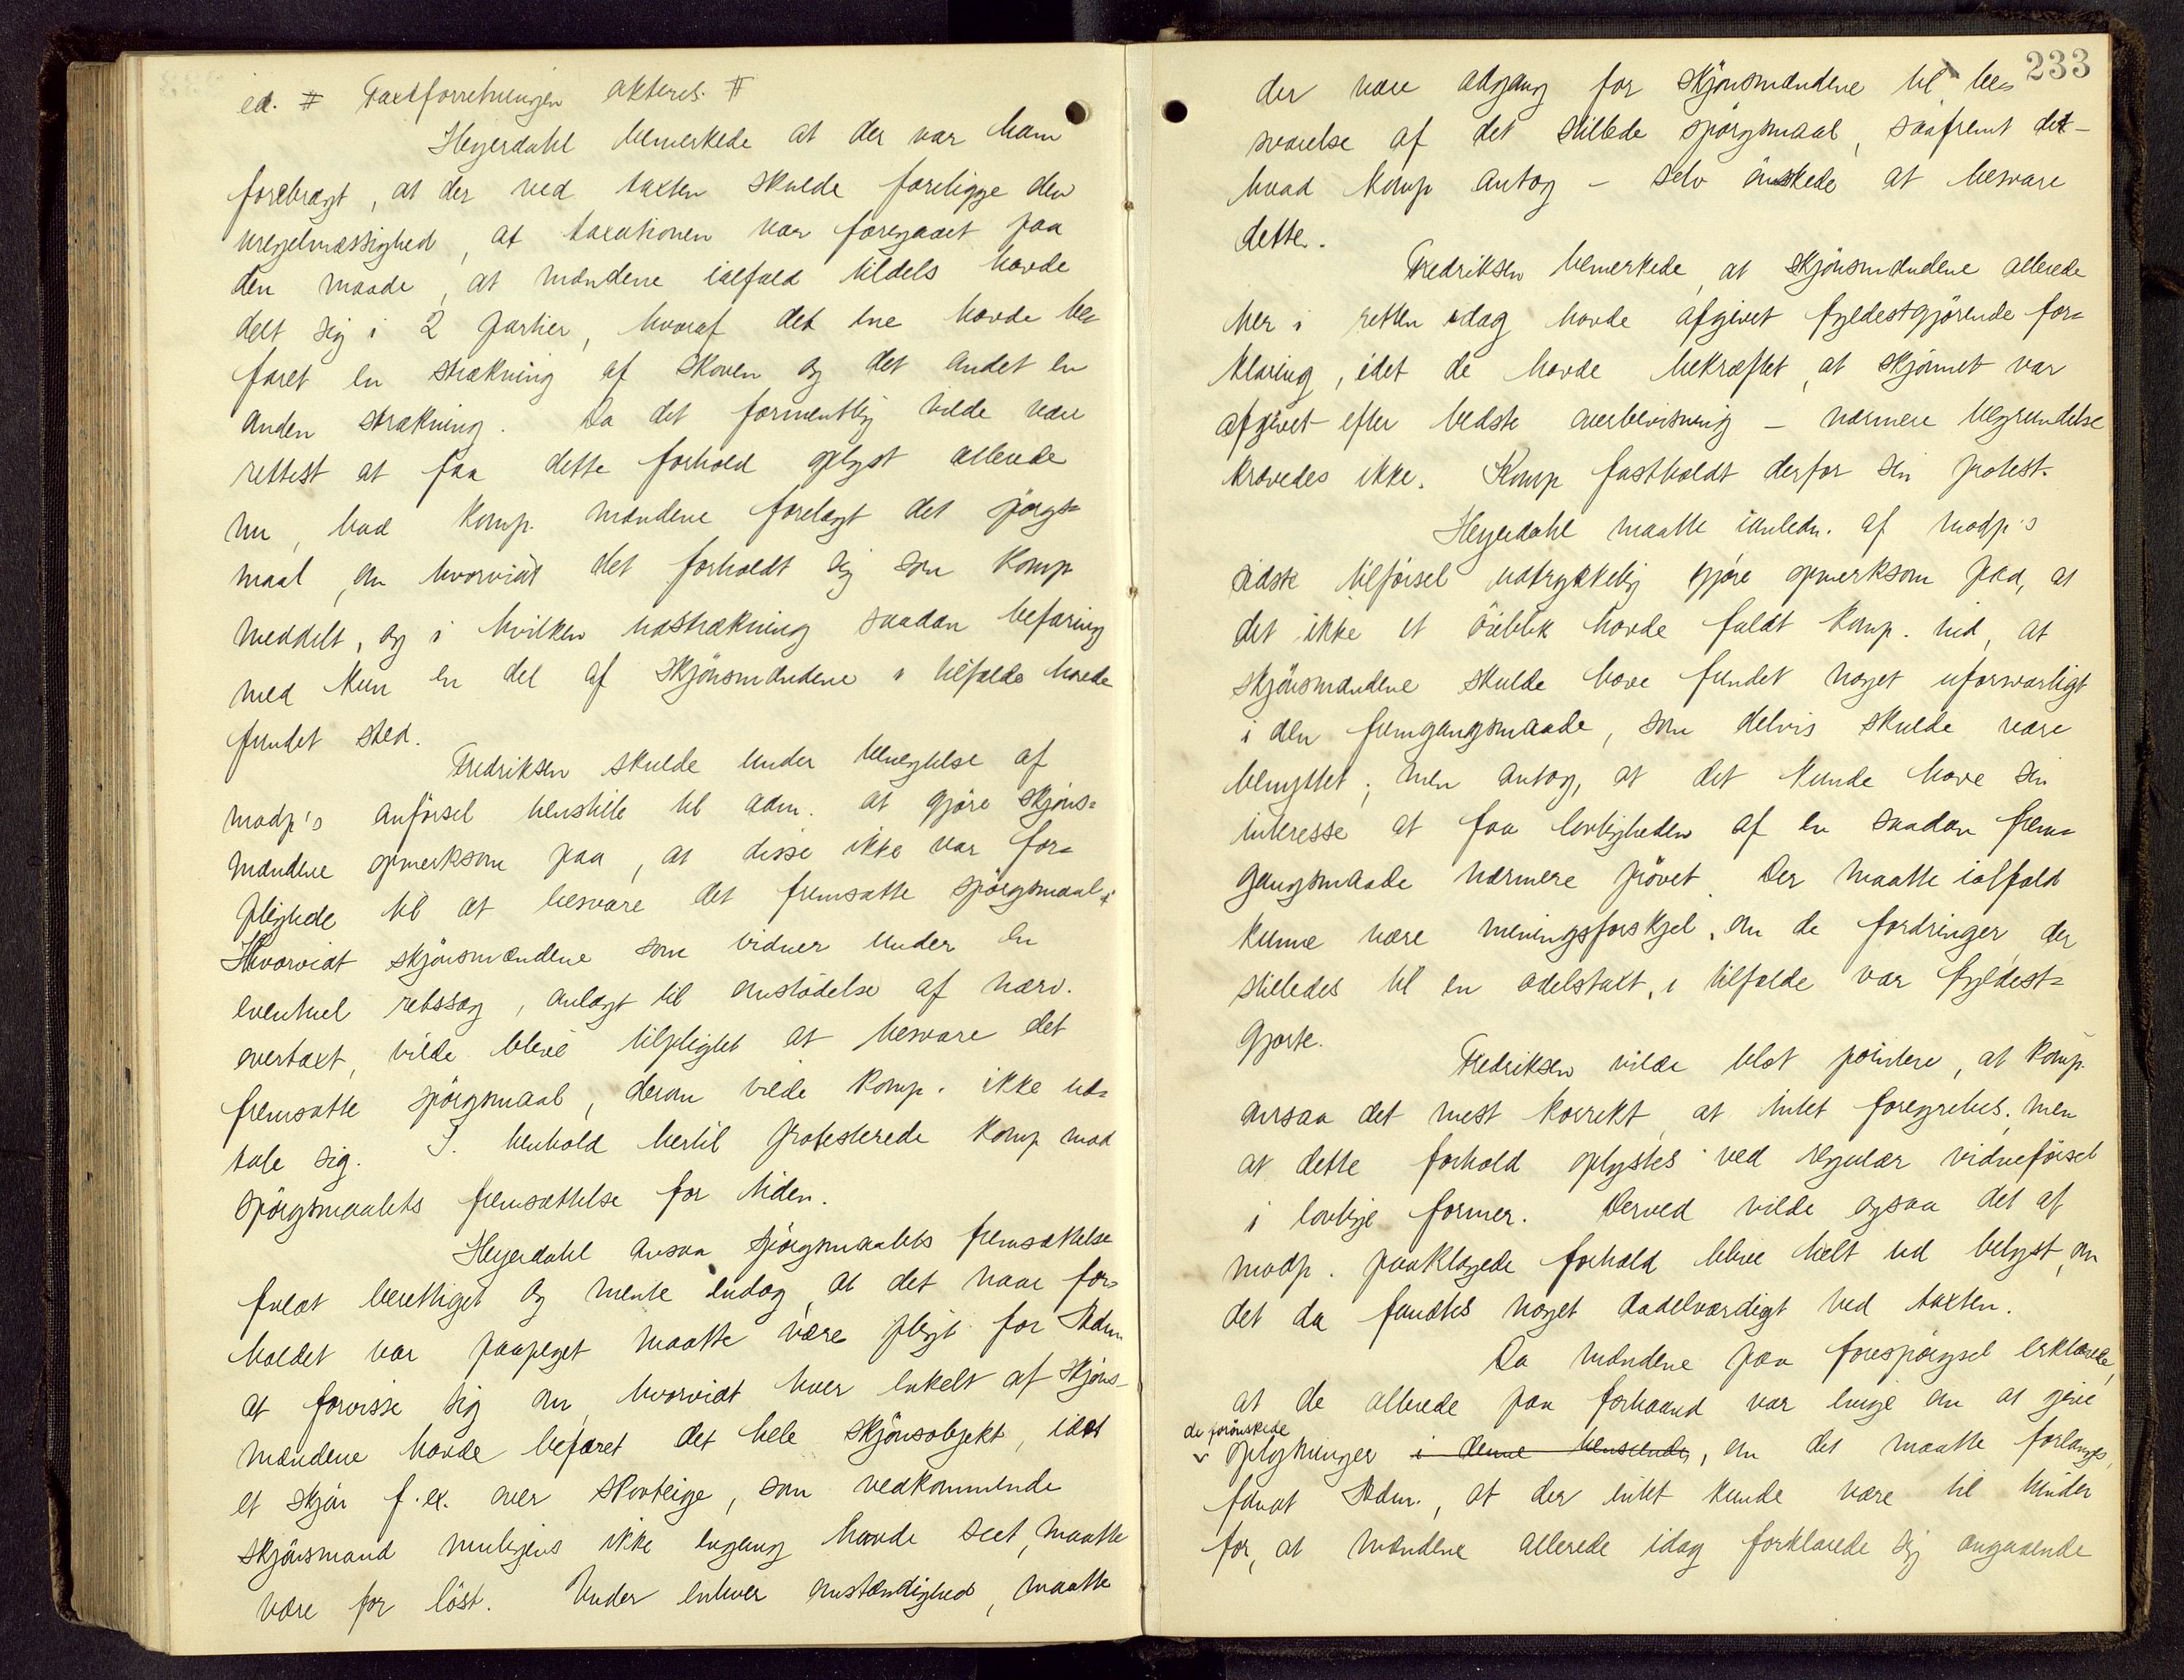 ed. # Taxtforretningen akteres. #
Heyerdahl bemerkede at der var ham
forebragt, at der ved taxten skulde foreligge den
uregelmæssighed, at taxationen var foregaaet paa
den maade, at mændene ialfald tildels havde
delt sig i 2 partier, hvoraf det ene havde be=
faret en strækning af skoven og det andet en
anden strækning. Da det formentlig vilde være
rettest at faa dette forhold oplyst allerede
nu, bad komp. mændene forelagt det spörgs=
maal, om hvorvidt det forholdt sig som komp
meddelt, og i hvilken udstrækning saadan befaring
med kun en del af skjönsmændene i tilfælde havde
fundet sted.
Fredriksen skulde under benegtelse af
modp's anförsel henstille til adm. at gjöre skjöns=
mændene opmerksom paa, at disse ikke var for=
pligtede til at besvare det fremsatte spörgsmaal.
Hvorvidt skjönsmændene som vidner under en
eventuel retssag, anlagt til omstödelse af nærv.
overtaxt, vilde blive tilpligtet at besvare det
fremsatte spörgsmaal, derom vilde komp. ikke ud=
tale sig. I henhold hertil protesterede komp mod
spörgsmaalets fremsættelse for tiden.
Heyerdahl ansaa spörgsmaalets fremsættelse
fuldt berettiget og mente endog, at det naar for=
holdet var paapeget maatte være pligt for Adm
at forvisse sig om, hvorvidt hver enkelt af skjöns=
mændene havde befaret det hele skjönsobjekt, idet
et skjön f. ex. over skovteige, som vedkommende
skjönsmand muligens ikke engang havde seet, maatte
være for löst. Under enhver omstændighed, maatte
233
der være adgang for skjönsmændene til be=
svarelse af det stillede spörgsmaal, saafremt de –
hvad komp antog – selv önskede at besvare
dette.
Fredriksen bemerkede, at skjönsmændene allerede
her i retten idag havde afgivet fyldestgjörende for=
klaring, idet de havde bekræftet, at skjönnet var
afgivet efter bedste overbevisning – nærmere begrundelse
krævedes ikke. Komp fastholdt derfor sin protest.
Heyerdahl maatte ianledn. af modp's
sidste tilförsel udtrykkelig gjöre opmerksom paa, at
det ikke et öieblik havde faldt komp. ind, at
skjönsmændene skulde have fundet noget uforsvarligt
i den fremgangsmaade, som delvis skulde være
benyttet; men antog, at det kunde have sin
interesse at faa lovligheden af en saadan frem=
gangsmaade nærmere prövet. Der maatte ialfald
kunne være meningsforskjel, om de fordringer, der
stilledes til en odelstaxt, i tilfælde var fyldest=
gjorte.
Fredriksen vilde blot pointere, at komp.
ansaa det mest korrekt, at intet foregrebes, men
at dette forhold oplystes ved regulær vidneförsel
i lovlige former. Derved vilde ogsaa det af
modp. paaklagede forhold blive helt ud belyst, om
det da fandtes noget dadelværdigt ved taxten.
Da mændene paa forespörgsel erklærede,
at de allerede paa forhaand var enige om at give
de forönskede
v oplysninger i denne henseende, om det maatte forlanges,
fandt Adm., at der intet kunde være til hinder
for, at mændene allerede idag forklarede sig angaaende